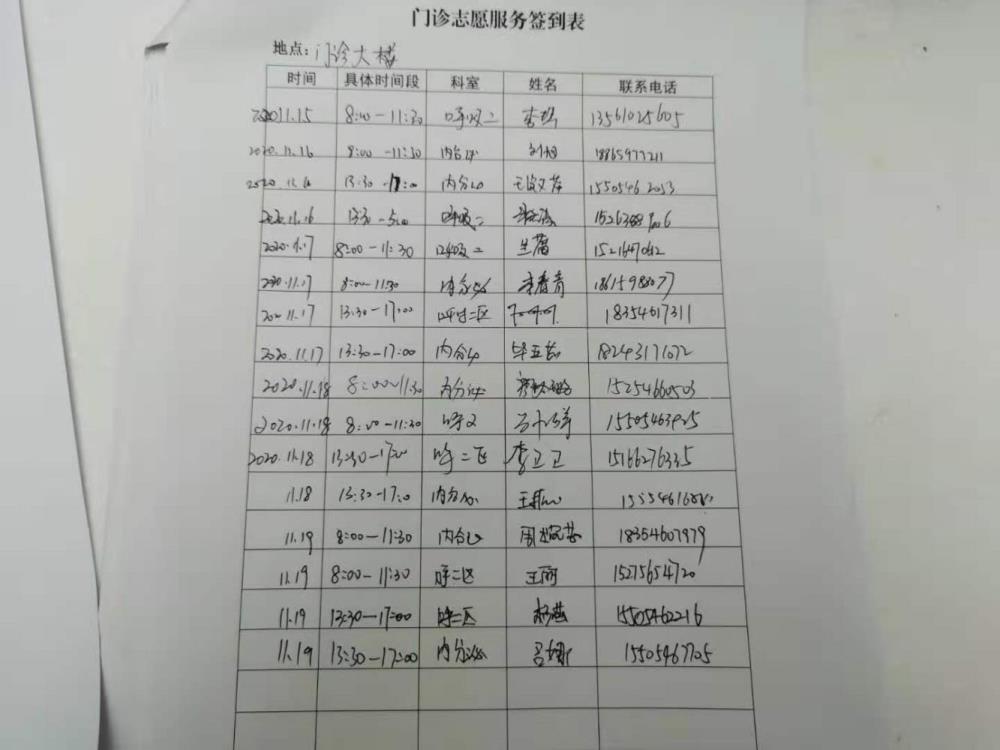 门诊志愿服务签到表
地点:门诊大楼
时间 具体时间段 科室 姓名 联系电话
2020.11.15 8:00-11:30 呼吸二 13561025605
2020.11.16 8:00-11:30 内分泌 刘旭 18865977211
2020.11.16 13:30-17:00 内分泌 15505462053
2020.11.16 13:30-5:00 呼吸二
2020.11.17 8:00-11:30 呼吸二
2020.11.17 8:00-11:30 内分泌 李春青 18615988077
2020.11.17 13:30-17:00 呼吸二区 18354617311
2020.11.17 13:30-17:00 内分泌 18243171072
2020.11.18 8:00~11:30 内分泌 15254660503
2020.11.18 8:00-11:30
2020.11.18 13:30-17:00 呼二区 李卫卫 15166276335
11.18 13:30-17:0 内分泌
11.19 8:00-11:30 内分泌 18354607979
11.19 8:00-11:30 呼二区 王丽 15275654720
11.19 13:30-17:00 呼二区 杨燕 15505462216
11.19 13:30-17:00 内分泌 15505467705